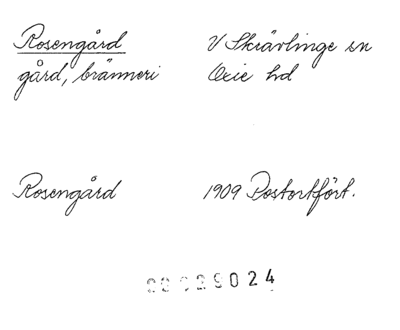 Rosengård
gård, bränneri
V Skrävlinge sn
Oxie hd
Rosengård
1909 Postortfört.